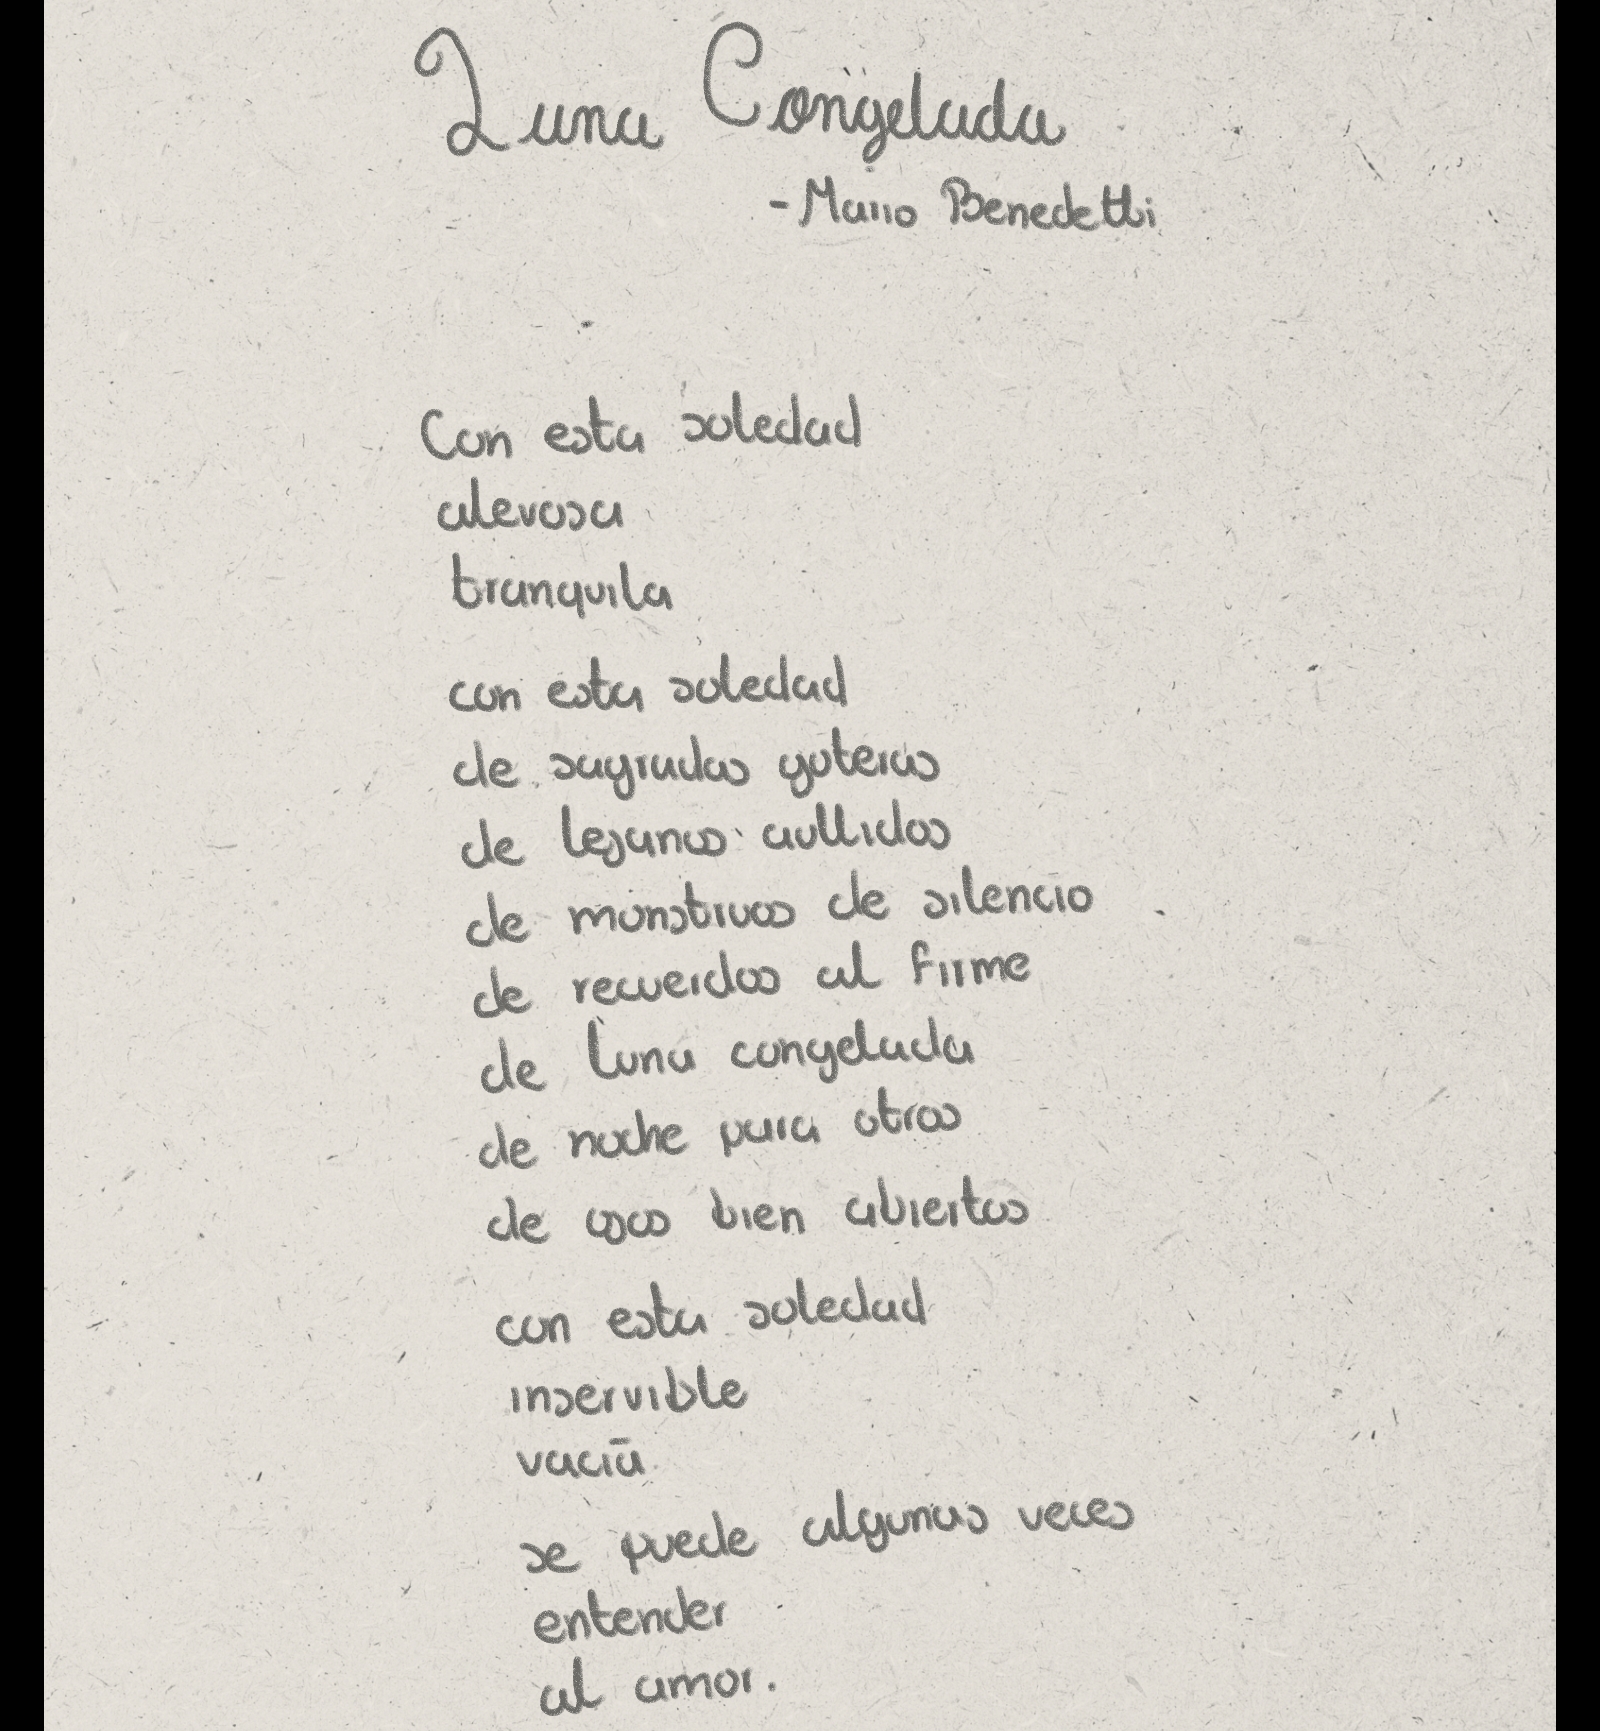 Luna Congelada
- Mario Benedetti
Con esta soledad
alevosa
tranquila
con esta soledad
de sagradas goteras
de lejanos aullidos
de monstruos de silencio
de recuerdos al firme
de luna congelada
de noche para otros
de ojos bien abiertos
con esta soledad
inservible
vacía
se puede algunas veces
entender
al amor.